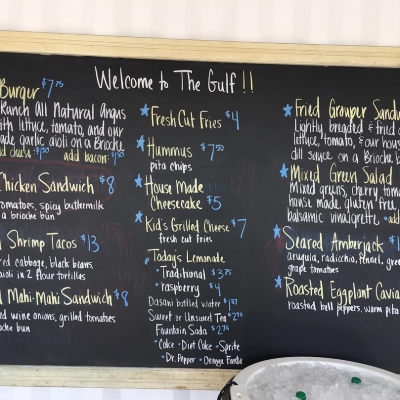 Welcome to The Gulf!!
Burger $7.75
Ranch All Natural Angus
with lettuce, tomato, and our
made garlic aioli on a Brioche
add cheese add bacon
Chicken Sandwich $8
tomatoes, spicy buttermilk
a brioche bun
Shrimp Tacos $13
red cabbage, black beans,
aioli in 2 flour tortillas
Mahi-Mahi Sandwich $8
red wine onions, grilled tomatoes
brioche bun
Fresh Cut Fries $4
Hummus $7.50
pita chips
House Made
Cheesecake $5
Kid's Grilled Cheese $7
fresh cut fries
Today's Lemonade
- Traditional $3.75
- raspberry $4
Dasani bottled water
Sweet or Unsweet Tea
Fountain Soda
- Coke - Diet Coke - Sprite
- Dr. Pepper - Orange Fanta
Fried Grouper
Lightly breaded & fried
lettuce, tomato, & our house
dill sauce on a Brioche
Mixed Green Salad
Mixed greens, cherry
house made, gluten free
balsamic vinaigrette
Seared Amberjack
arugula, radicchio, fennel,
grape tomatoes
Roasted Eggplant Caviar
roasted bell peppers, warm pita